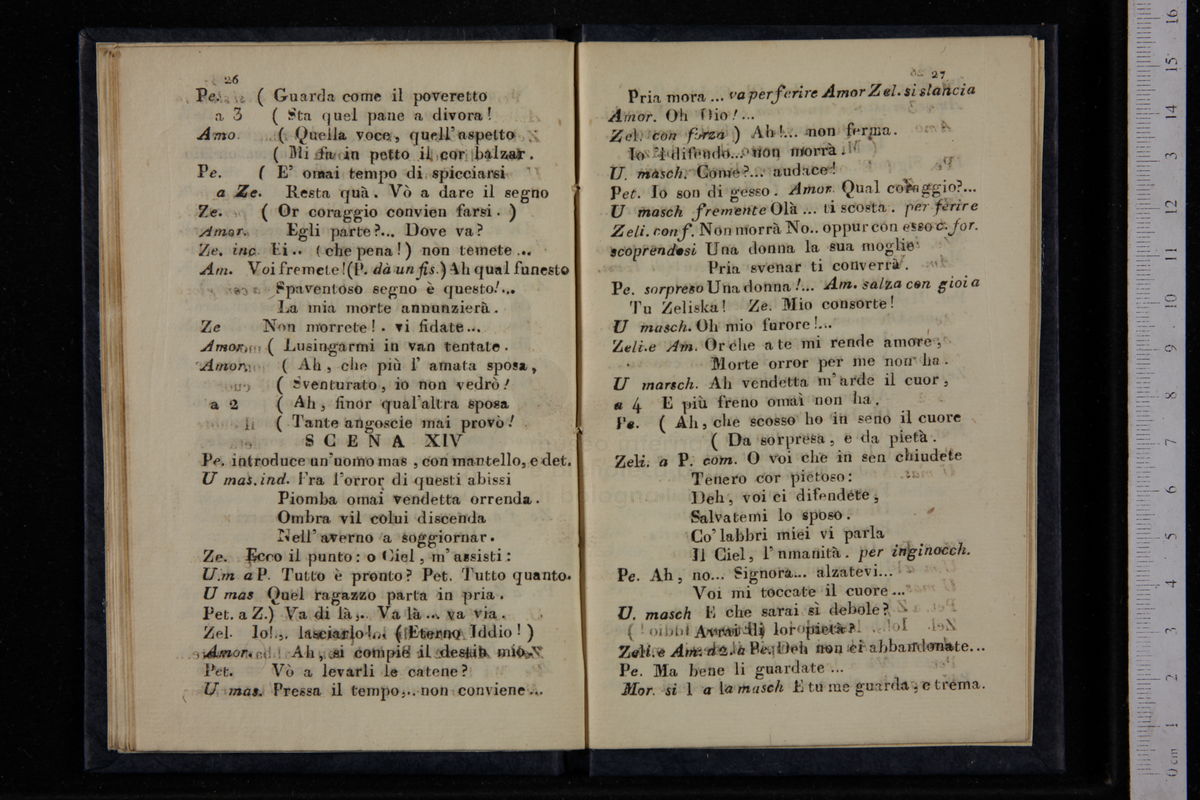 26
Pe. ( Guarda come il poveretto
a 3 ( Sta quel pane a divora!
Amo. ( Quella voce, quell'aspetto
( Mi fa in petto il cor balzar.
Pe. ( E' omai tempo di spicciarsi
a Ze. Resta quà. Vò a dare il segno
Ze. ( Or coraggio convien farsi. )
Amor. Egli parte?... Dove va?
Ze. inc. Ei.. (che pena!) non temete...
Am. Voi fremete! (P. dà un fis.) Ah qual funesto
Spaventoso segno è questo!...
La mia morte annunzierà.
Ze Non morrete!. vi fidate...
Amor. ( Lusingarmi in van tentate.
Amor. ( Ah, che più l' amata sposa,
( Sventurato, io non vedrò!
a 2 ( Ah, finor qual'altra sposa
( Tante angoscie mai provò!
SCENA XIV
Pe. introduce un'uomo mas, con mantello, e det.
U mas. ind. Fra l'orror di questi abissi
Piomba omai vendetta orrenda.
Ombra vil colui discenda
Nell'averno a soggiornar.
Ze. Ecco il punto: o Ciel, m'assisti:
U.m a P. Tutto è pronto? Pet. Tutto quanto.
U mas Quel ragazzo parta in pria.
Pet. a Z.) Va di là,.. Va là... va via.
Zel. Io!.,. lasciarlo!... (Eterno Iddio!)
Amor. Ah, si compiè il destin mio.
Pet. Vò a levarli le catene?
U mas. Pressa il tempo,.. non conviene...
27
Pria mora... va per ferire Amor Zel. si slancia
Amor. Oh Dio!...
Zel. con forza) Ah!... non ferma.
Io 'l difendo... non morrà.
U. masch. Come?... audace!
Pet. Io son di gesso. Amor. Qual coraggio?...
U masch fremente Olà... ti scosta. per ferire
Zeli. conf. Non morrà No.. oppur con esso c. for.
scoprendosi Una donna la sua moglie
Pria svenar ti converrà.
Pe. sorpreso Una donna!... Am. salza con gioia
Tu Zeliska! Ze. Mio consorte!
U masch. Oh mio furore!...
Zeli.e Am. Or che a te mi rende amore,
Morte orror per me non ha.
U marsch. Ah vendetta m'arde il cuor,
a 4 E più freno omai non ha.
Pe. ( Ah, che scosso ho in seno il cuore
( Da sorpresa, e da pietà.
Zeli. a P. com. O voi che in sen chiudete
Tenero cor pietoso:
Deh, voi ci difendete,
Salvatemi lo sposo.
Co'labbri miei vi parla
Il Ciel, l'umanità. per inginocch.
Pe. Ah, no... Signora... alzatevi...
Voi mi toccate il cuore...
U. masch E che sarai sì debole?
Avrai di lor pietà?
Zeli.e Am. a 2. a Pe. Deh non ci abbandonate...
Pe. Ma bene li guardate...
Mor. si l a la masch E tu me guarda, e trema.